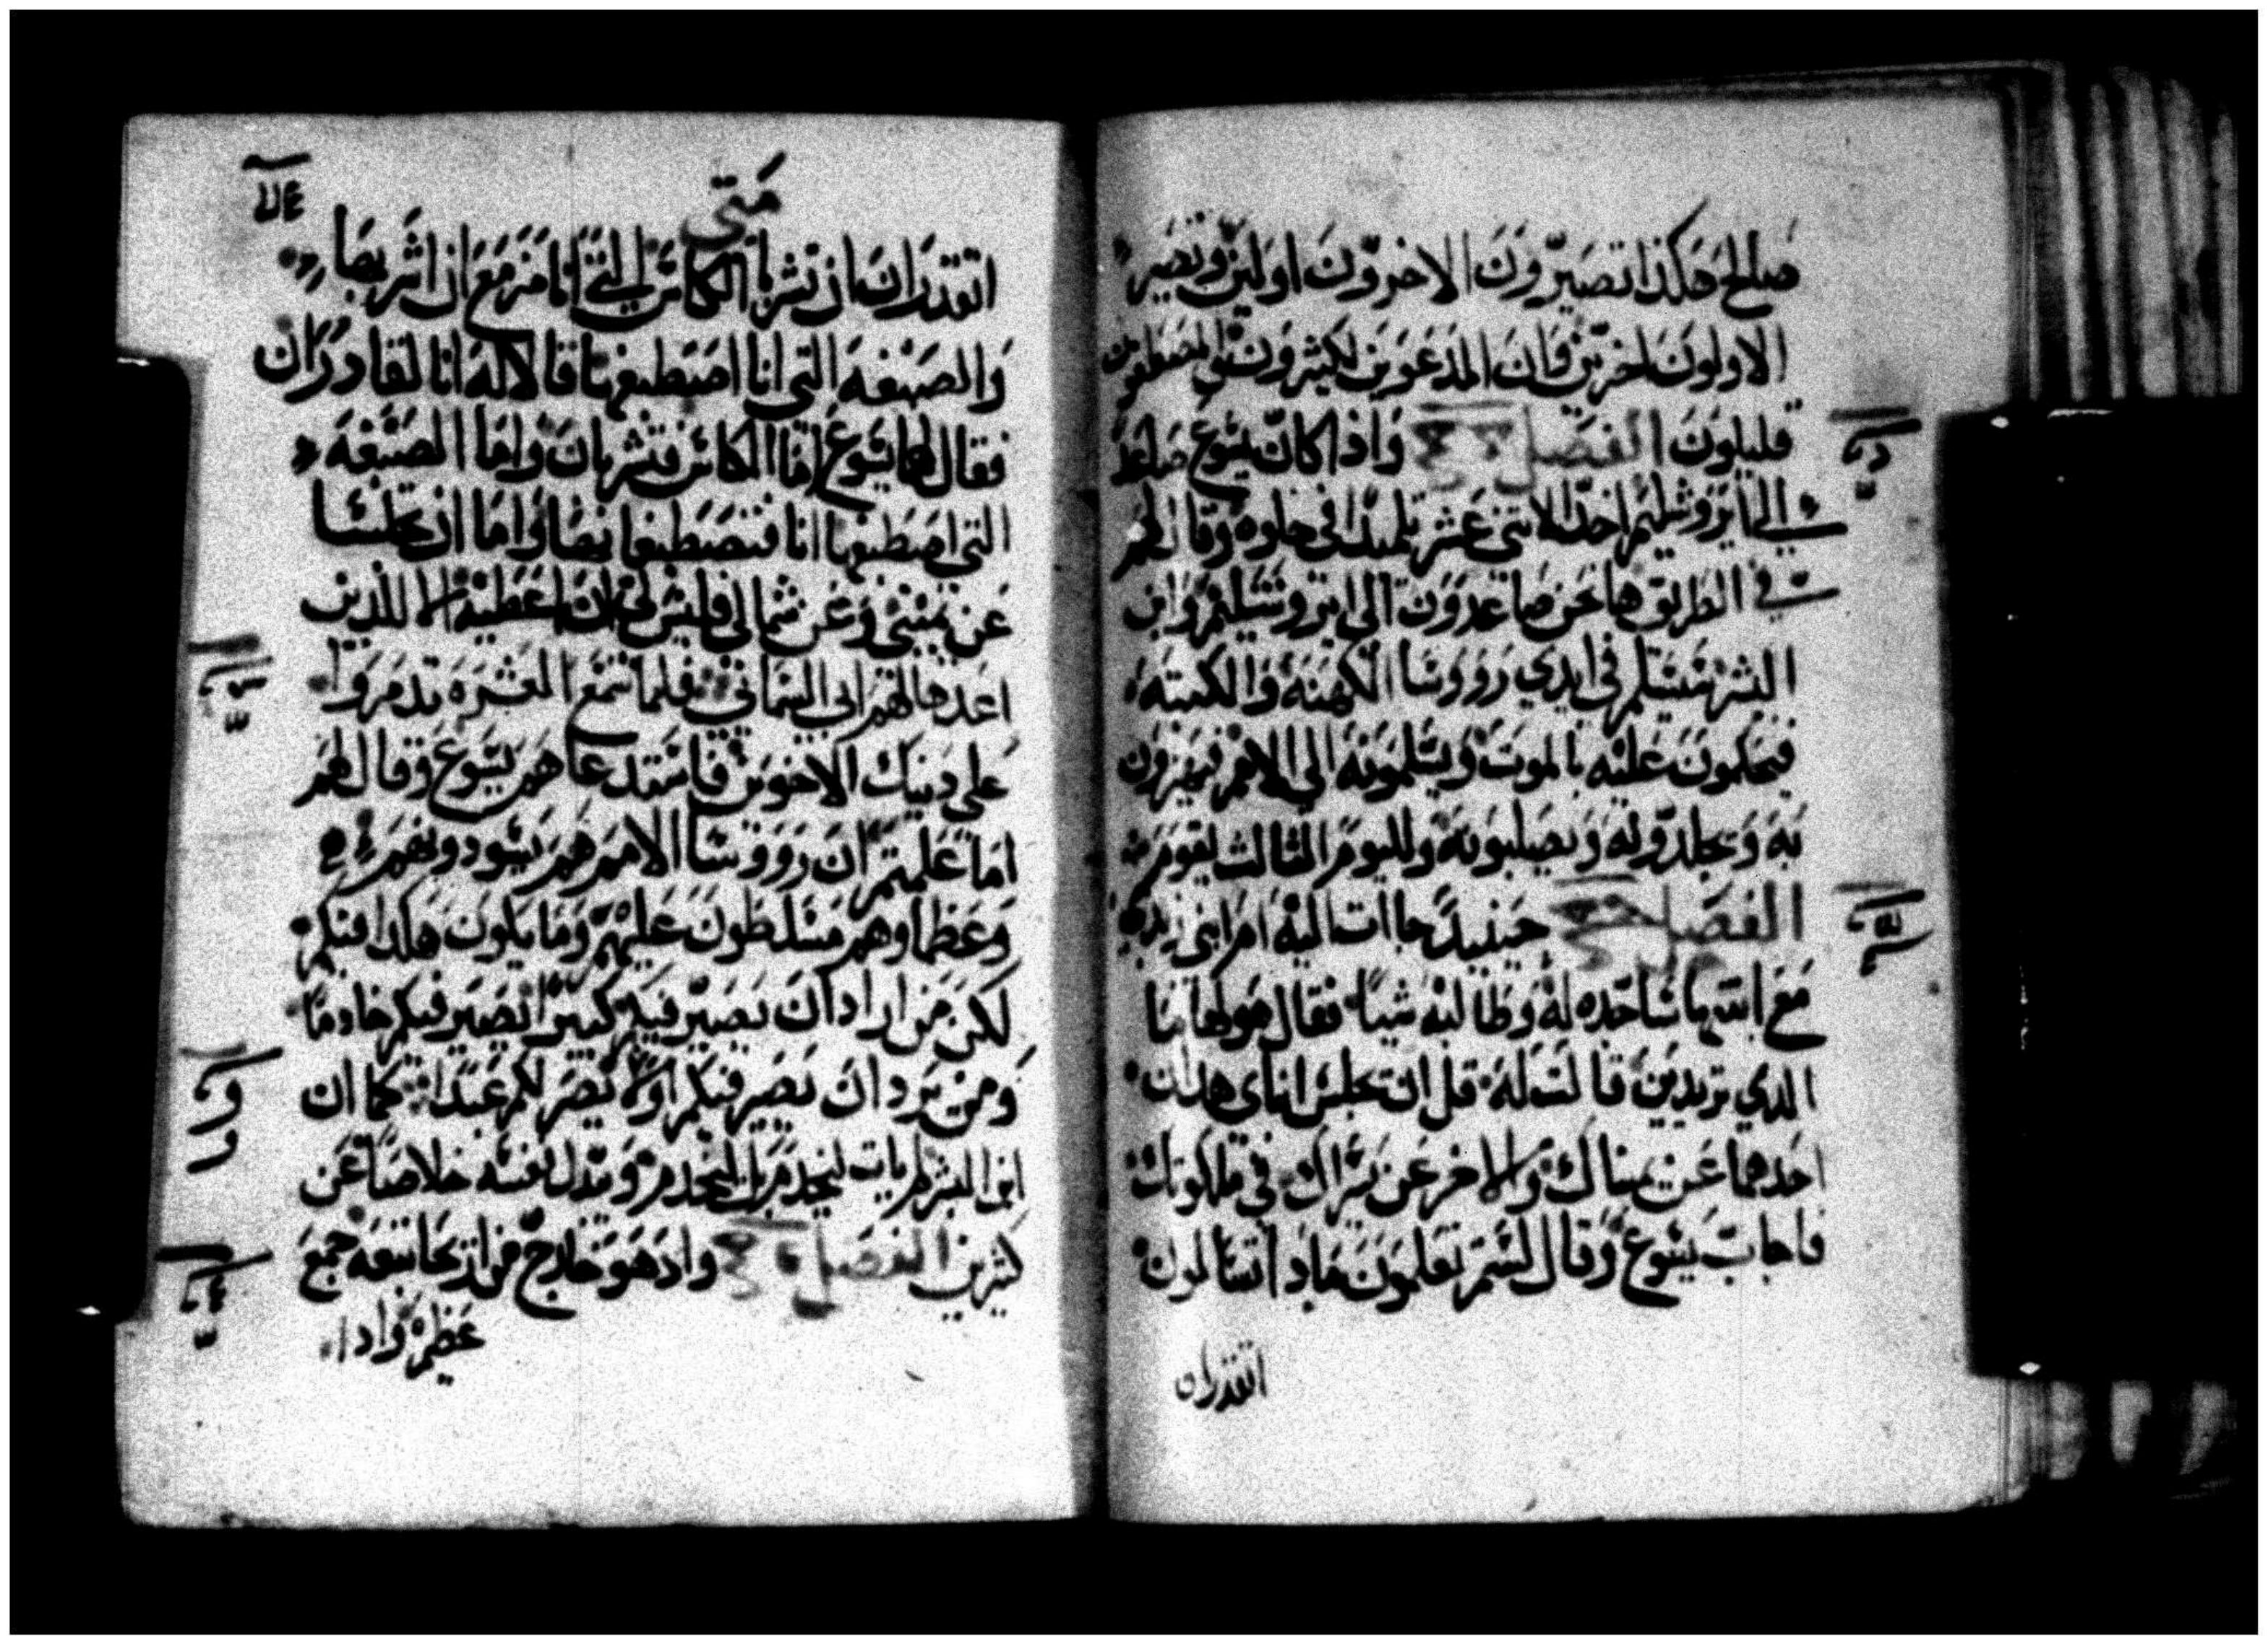 صالح هكذا تصيرون الاخرون اولين وتصير
الاولون اخرين فان المدعوين لكثيرون
قليلون الفصل واذا كان يشوع صاعدا
الي ايروشليم اخذ الاثني عشر تلميذا في خلوه وقال لهم
في الطريق ها نحن صاعدون الي ايروشليم وابن
البشر يسلم في ايدي رووسا الكهنه والكتبه
فيحكمون عليه بالموت ويسلمونه الي الامم فيهزون
به ويجلدونه ويصلبونه ولليوم الثالث يقوم
الفصل حينيد جاات اليه ام ابني زبدي
مع ابنيها ساجده له وطالبه شيا فقال هو لها ما
الدي تريدين قالت له قل ان تجلس ابناي هدان
احدهما عن يمينك والاخر عن يسراك في ملكوتك
فاجاب يشوع وقال لستم تعلمون مادا تسالون
اتقدران
متي
اتقدران ان تشربا الكاس التي انا مزمع ان اشربها
والصبغه التي انا اصطبغها قالا له انا لقادران
فقال لهما يشوع اما الكاس فتشربان واما الصبغه
التي اصطبغها انا فتصطبغانها واما ان تجلسا
عن يميني وعن شمالي فليس لي ان اعطيه الا للذين
اعدها لهم ابي السماني فلما سمع العشره تدمروا
علي دينك الاخوين فاستدعاهم يشوع وقال لهم
اما علمتم ان رووسا الامم هم يسودونهم
وعظماوهم مسلطون عليهم وما يكون هكدا فيكم
لكن من اراد ان يصير فيكم كبيرا يصير فيكم خادما
ومن يرد ان يصير فيكم اولا يصر لكم عبدا كما ان
ابن البشر لم يات ليخدم بل ليخدم ويبدل نفسه خلاصا عن
كثيرين الفصل واد هو خارج من اريحا تبعه جمع
عظيم وادا